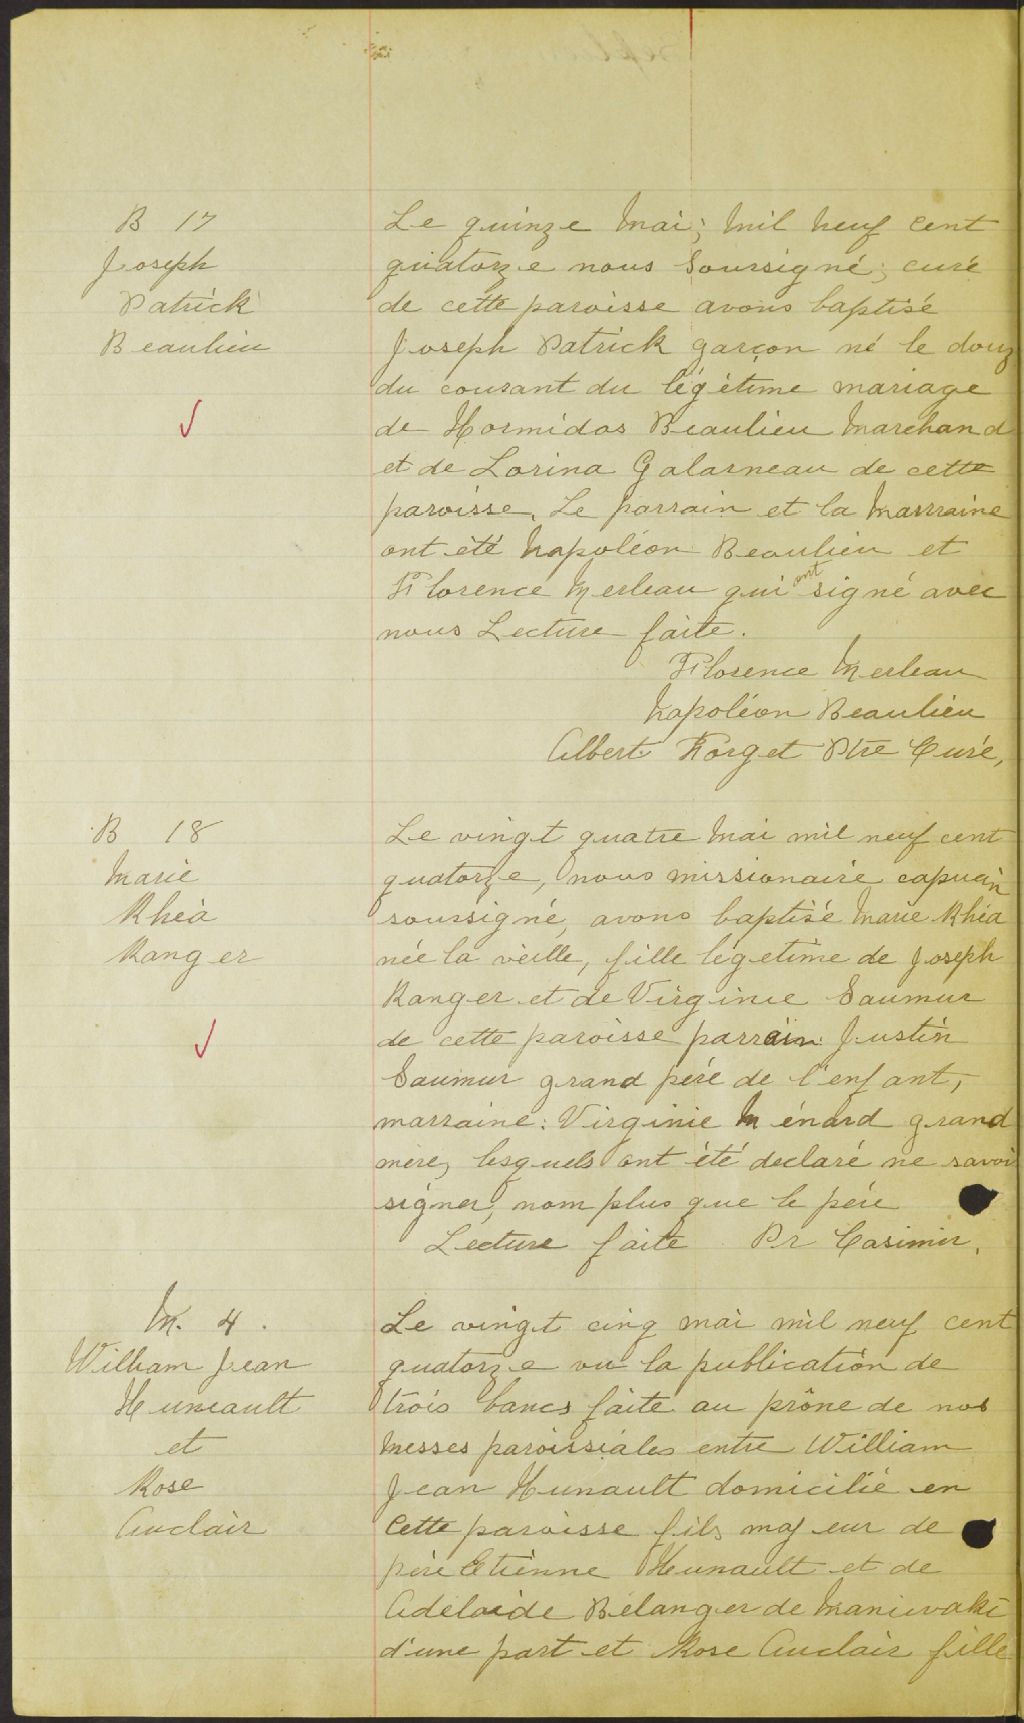 B 17
Joseph
Patrick
Beaulieu
Le quinze Mai; Mil Neuf Cent
quatorze nous Soursigné; curé
de cette paroisse avons baptisé
Joseph Patrick garçon né le douz
du courant du légétime mariage
de Hormidos Beaulieu Marchand
et de Lorina Galarneau de cette
paroisse. Le parrain et la Marrraine
ont été Napoléon Beaulieu et
Florence Merleau qui ont signé avec
nous Lecture faite.
Florence Merleau
Napoléon Beaulieu
Albert Forget Ptre Curé,
B 18
Marie
Rhéa
Ranger
Le vingt quatre Mai mil neuf cent
quatorze, nous missionaire capucin
soussigné, avons baptisé Marie Rhéa
née la veille, fille légetime de Joseph
Ranger et de Virginie Saumur
de cette paroisse parrain: Justin
Saumur grand pére de l'enfant,
marraine: Virginie Ménard grand
mère, lesquels ont été declaré ne savoi
signer, nom plus que le pére
Lecture faite Pr Casimir.
M. 4.
William Jean
Huneault
et
Rose
Auclair
Le vingt cinq mai mil neuf cent
quatorze vu la publication de
trois bancs faite au prône de nos
Messes paroissiales entre William
Jean Hunault domicilié en
Cette paroisse fils majeur de
pére Etienne Hunault et de
Adelaide Bélanger de Maniwaki
d'une part et Rose Auclair fille